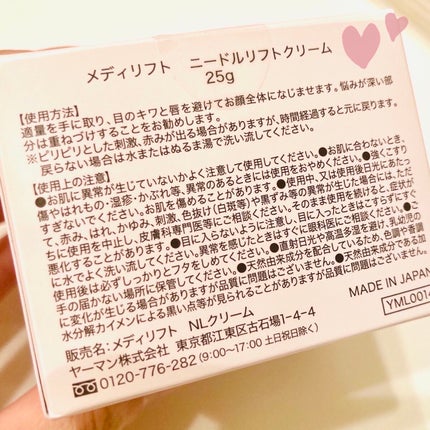 メディリフト　ニードルリフトクリーム
25g
【使用方法】
適量を手に取り、目のキワと唇を避けてお顔全体になじませます。悩みが深い部
分は重ねづけすることをお勧めします。
※ピリピリとした刺激、赤みが出る場合がありますが、時間経過すると元に戻ります。
戻らない場合は水またはぬるま湯で洗い流してください。
【使用上の注意】
●お肌に異常が生じていないかよく注意して使用してください。●お肌に合わないとき、
傷やはれもの・湿疹・かぶれ等、異常のあるときには使用をおやめください。●強くこすり
すぎないでください。お肌を傷めることがあります。●使用中、又は使用後日光にあたっ
て、赤み、はれ、かゆみ、刺激、色抜け(白斑等)や黒ずみ等の異常が生じた場合には、ただ
ちに使用を中止し、皮膚科専門医等にご相談ください。そのまま使用を続けると、症状が
悪化することがあります。●目に入らないように注意し、目に入ったときはこすらずにすぐ
に水でよく洗い流してください。異常を感じたときはすぐに眼科医にご相談ください。●ご
使用後は必ずしっかりとフタをしめてください。●直射日光や高温多湿を避け、乳幼児の
手の届かない場所に保管してください。●天然由来成分を配合しているため、色調や香調
に変化が生じる場合がありますが品質に問題はございません。●天然由来成分である加
水分解カイメンによる黒い点等が見られることがありますが品質に問題はございません。
販売名：メディリフト　NLクリーム
ヤーマン株式会社　東京都江東区古石場1-4-4
0120-776-282 (9:00〜17:00 土日祝日除く)
MADE IN JAPAN